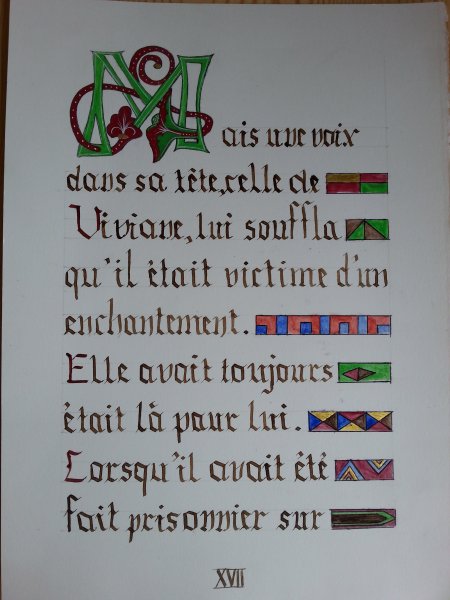 Mais une voix
dans sa tête, celle de
Viviane, lui souffla
qu'il était victime d'un
enchantement.
Elle avait toujours
était là pour lui.
Lorsqu'il avait été
fait prisonnier sur
XVII